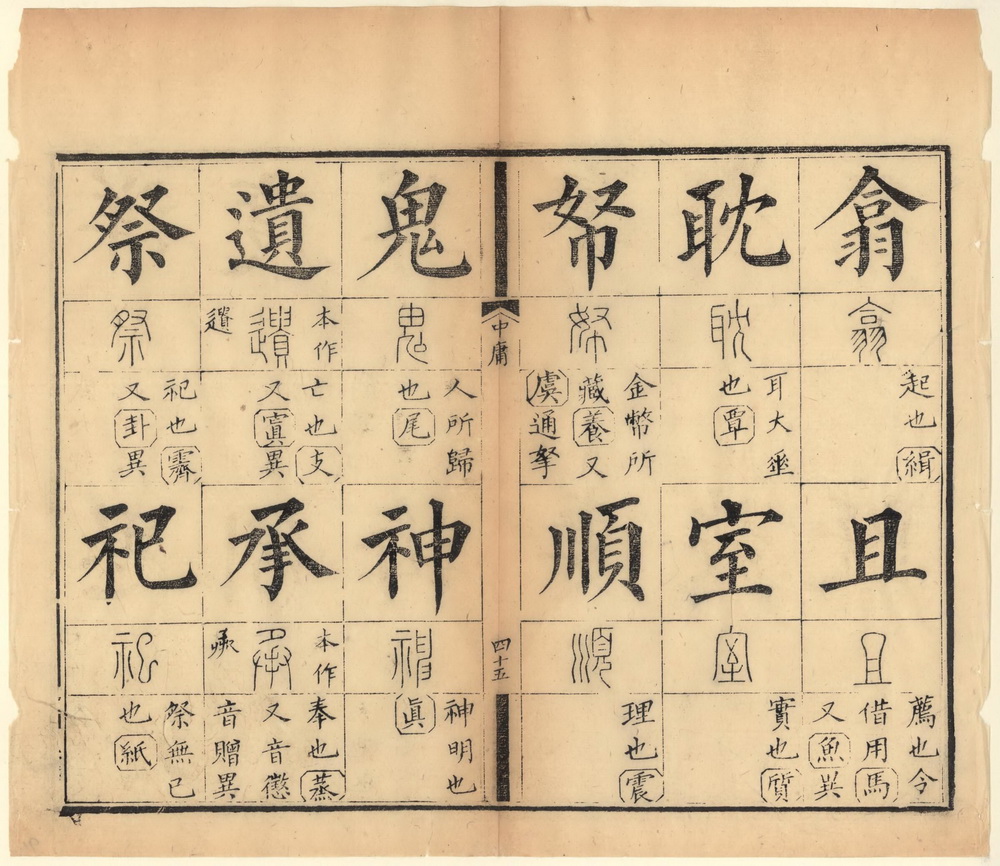 翕
翕
起也緝
且
且
薦也今
借用馬
又魚異
耽
耽
耳大垂
也覃
室
室
實也質
帑
帑
金幣所
藏養又
虞通孥
順
順
理也震
中庸
四十五
鬼
鬼
人所歸
也尾
神
神
神明也
眞
遺
本作
遺
亡也支
又寘異
承
本作
承
奉也蒸
又音懲
音贈異
祭
祭
祀也霽
又卦異
祀
祀
祭無已
也紙